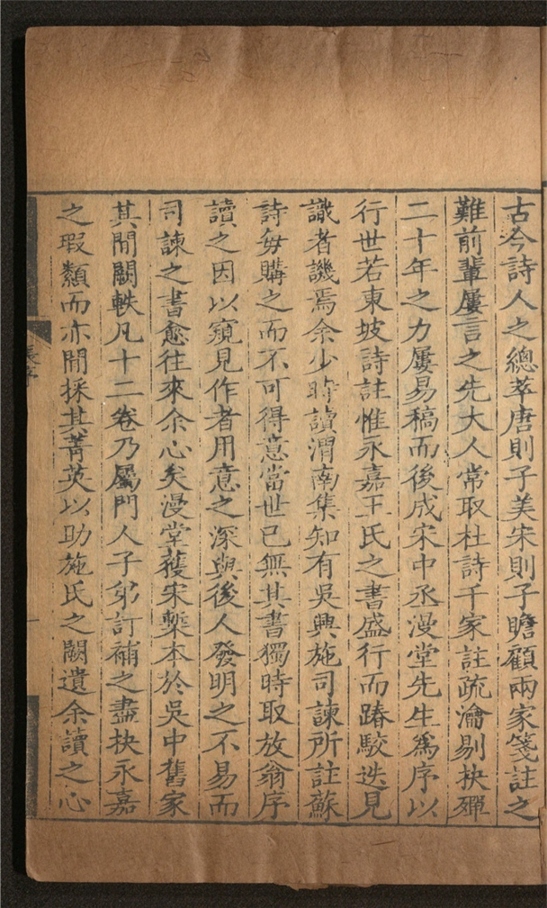 古今詩人之總萃唐則子美宋則子瞻顧兩家箋註之
難前輩屢言之先大人常取杜詩千家註疏瀹剔抉殫
二十年之力屢易稿而後成宋中丞漫堂先生爲序以
行世若東坡詩註惟永嘉王氏之書盛行而踳駮迭見
識者譏焉余少時讀渭南集知有吳興施司諫所註蘇
詩每購之而不可得意當世已無其書獨時取放翁序
讀之因以窺見作者用意之深與後人發明之不易而
司諫之書愈往來余心矣漫堂獲宋槧本於吳中舊家
其間闕軼凡十二卷乃屬門人子弟訂補之盡抉永嘉
之瑕纇而亦間採其菁英以助施氏之闕遺余讀之心